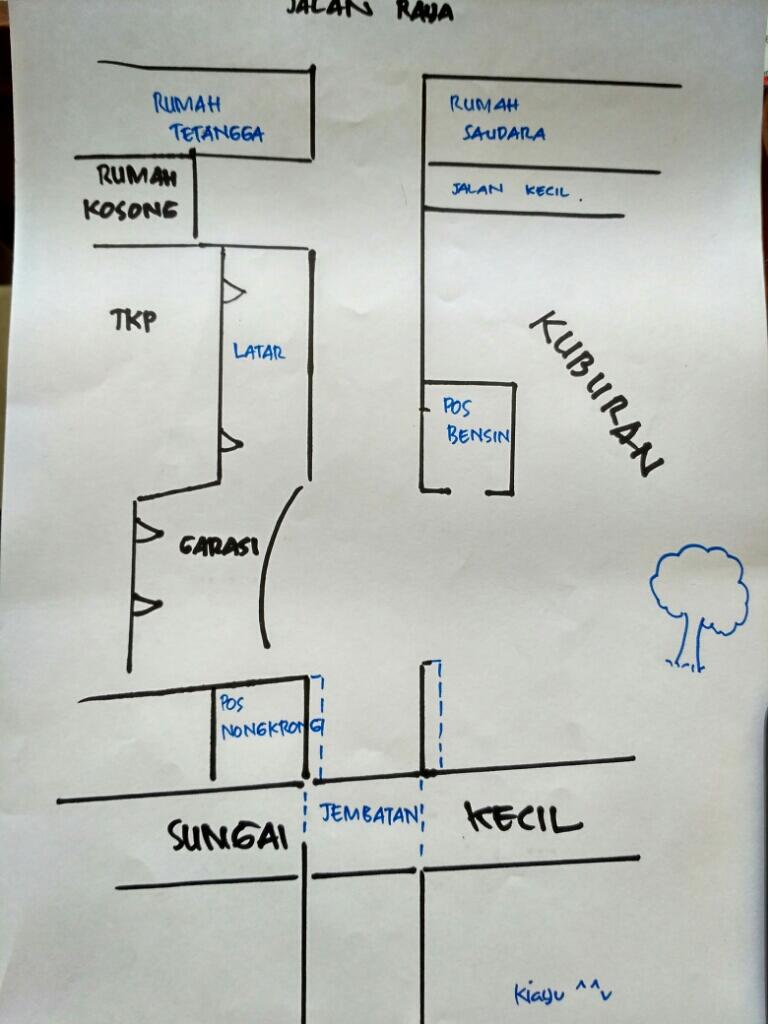 JALAN RAYA
RUMAH
TETANGGA
RUMAH
SAUDARA
RUMAH
KOSONG
JALAN KECIL.
TKP
LATAR
KUBURAN
POS
BENSIN
GARASI
POS
NONGKRONG
SUNGAI
JEMBATAN
KECIL
Kiayu ^^v